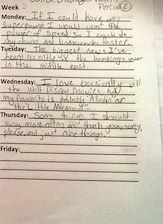 Week
Period 2
Monday: If I could have any
superpower I would have the
power of speed so I could do
my chores and homework faster.
Tuesday: The biggest news I've
heard recently is the bombings over
in the middle east.
Wednesday: I love basically all
the Walt Disney movies but
my favorite is probably Aladdin or
"the little Mermaid".
Thursday: Some things I should
say more often are thank you, sorry,
please, and just nice things.
Friday: